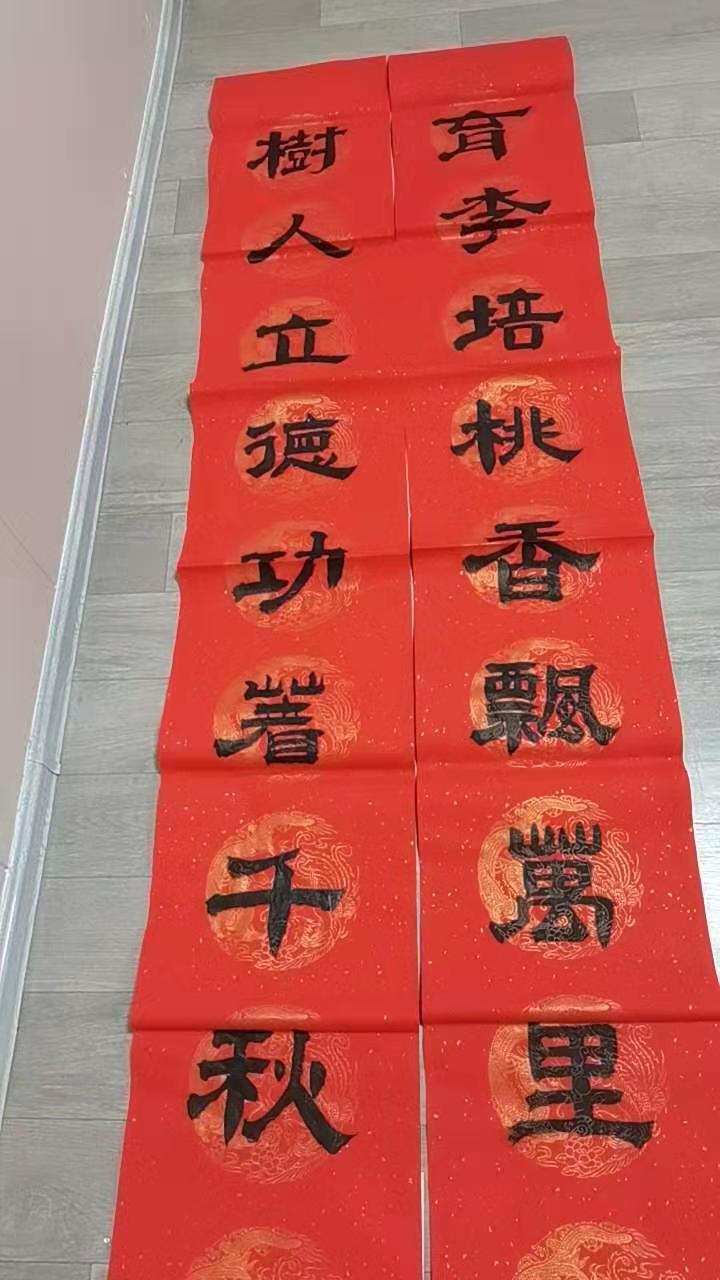 育李培桃香飄萬里
樹人立德功著千秋